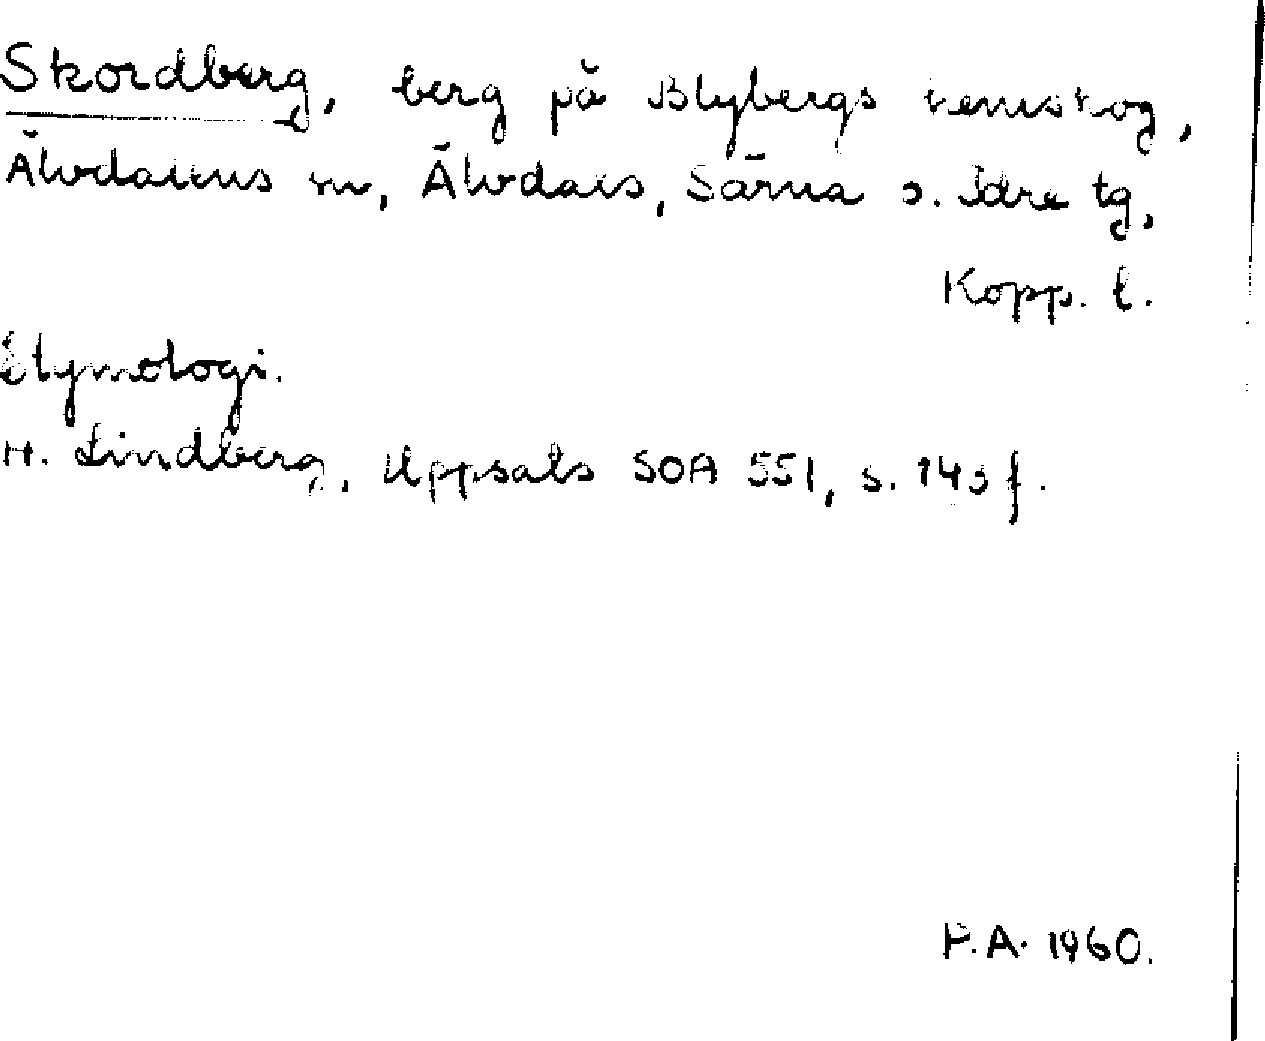 Skordberg, berg på Blybergs hemskog,
Älvdalens sn, Älvdals, Särna o. Idre tg,
Kopp. l.
Etymologi.
H. Lindberg, Uppsala SOA 551, s. f.
P.A. 1960.